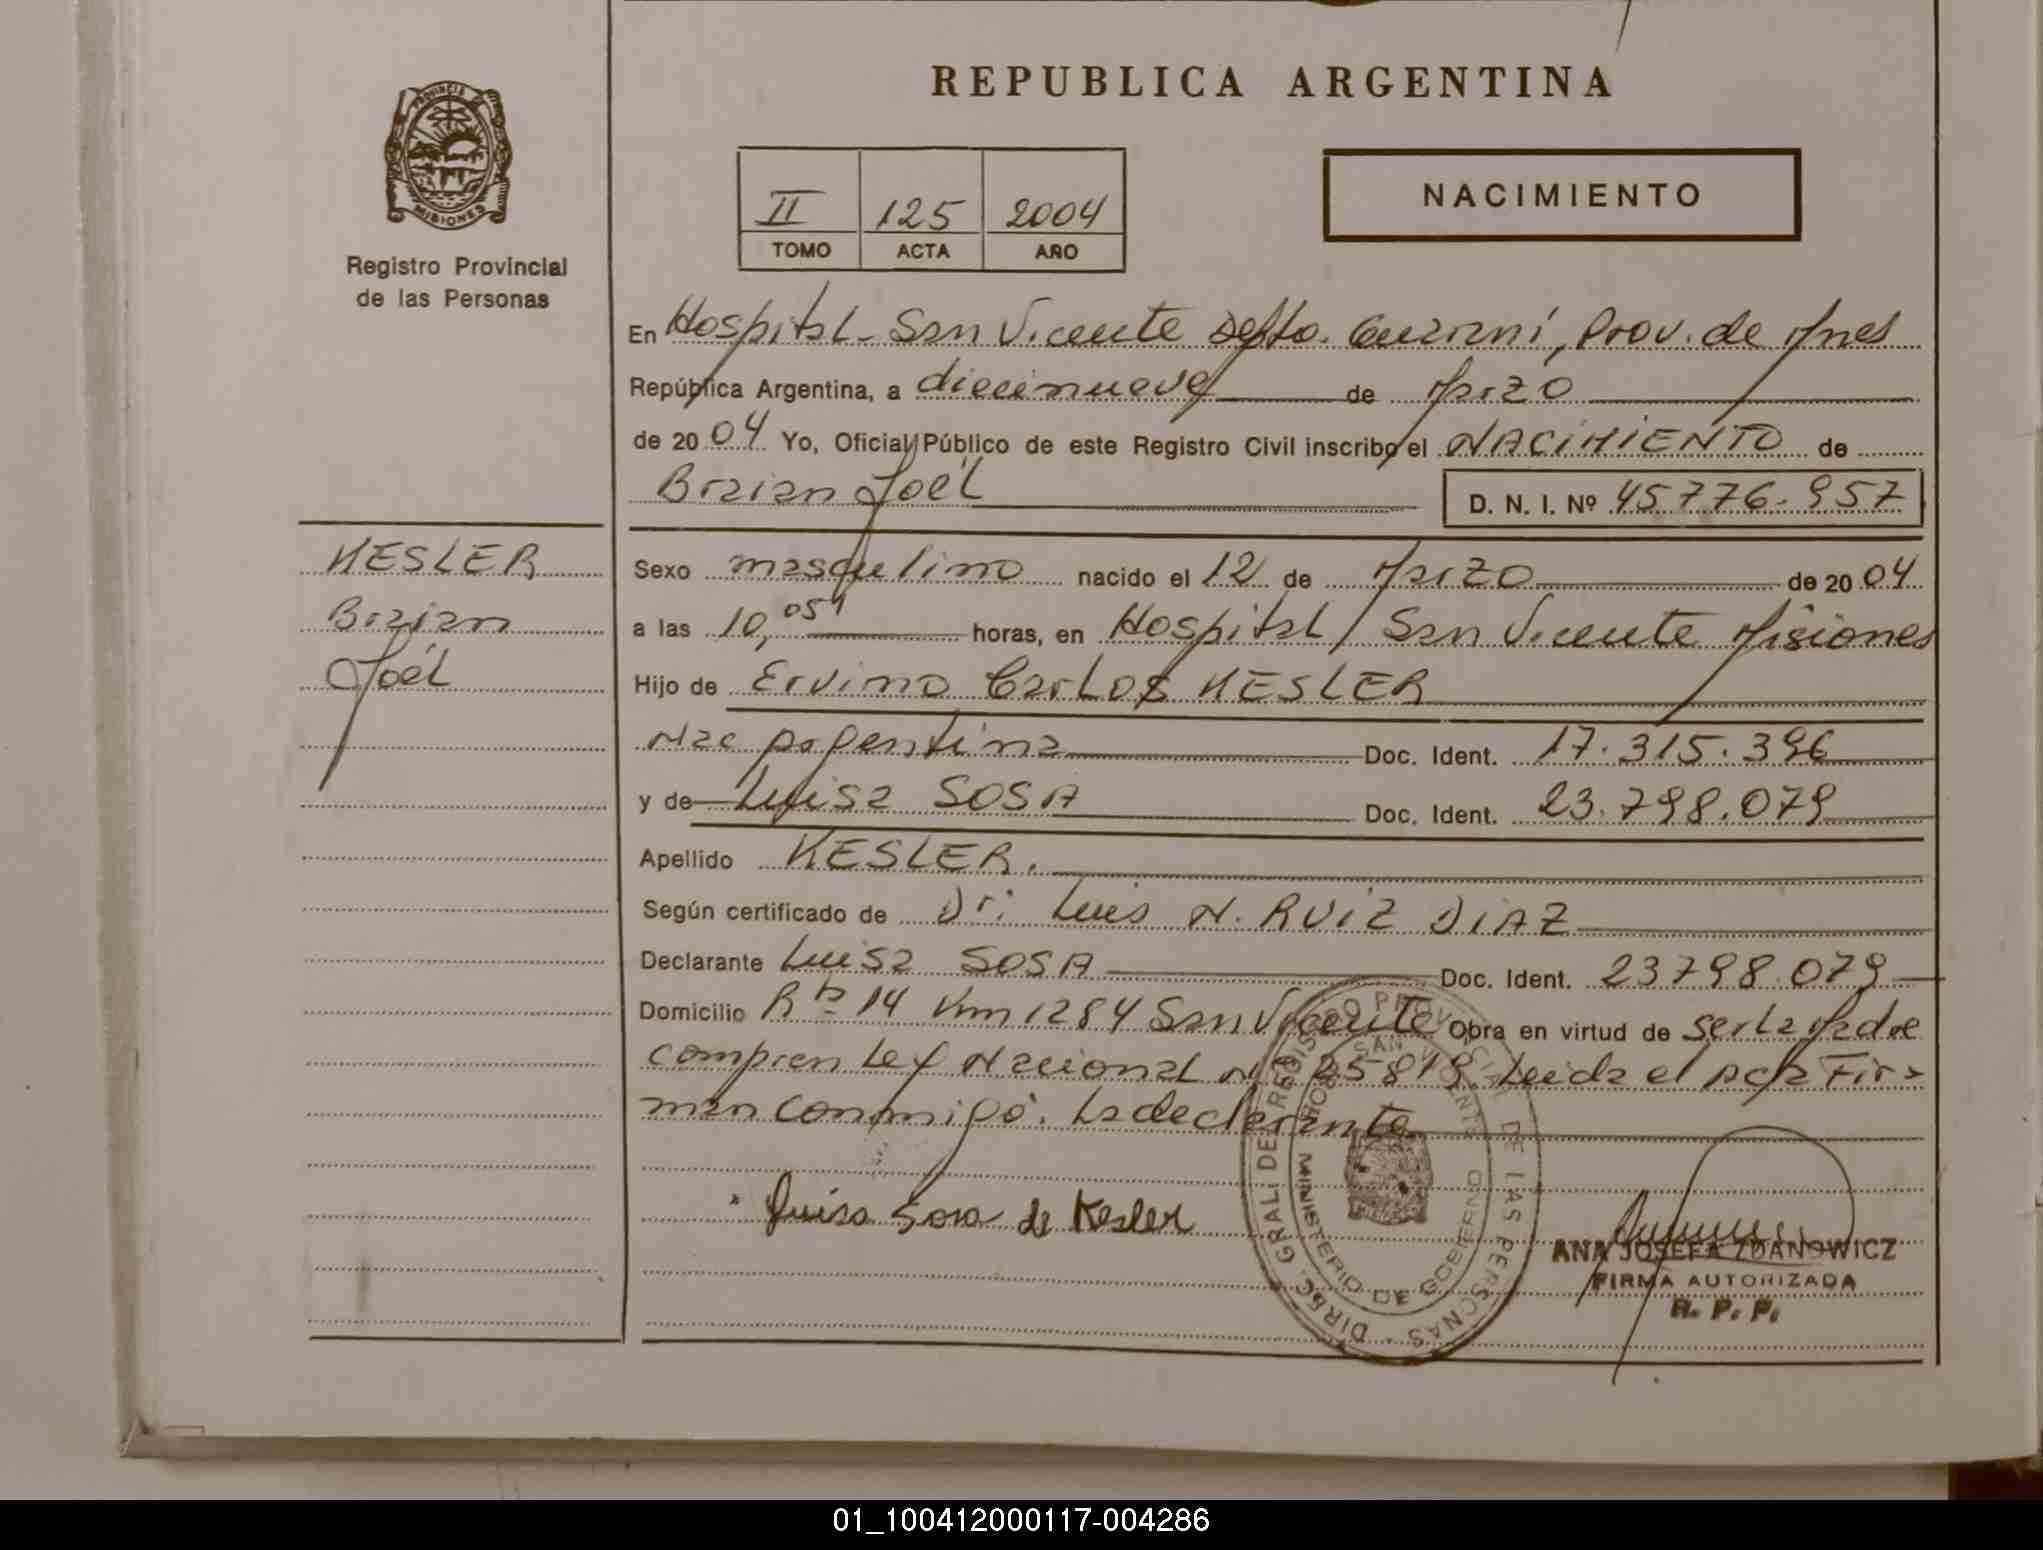 REPUBLICA ARGENTINA
PROVINCIA DE
MISIONES
Registro Provincial
de las Personas
II 125 2004
TOMO ACTA AÑO
NACIMIENTO
En Hospital - San Vicente Depto. Guaraní, Prov. de Mnes
República Argentina, a diecinueve de Marzo
de 2004 Yo, Oficial Público de este Registro Civil inscribo el NACIMIENTO de
Braian Joél
D. N. I. Nº 45.776.957
KESLER
Braian
Joél
Sexo masculino nacido el 12 de Marzo de 2004
a las 10,05 horas, en Hospital / San Vicente Misiones
Hijo de Ervino Carlos KESLER
Nac Argentina Doc. Ident. 17.315.396
y de Luisa SOSA Doc. Ident. 23.798.079
Apellido KESLER.
Según certificado de Dr. Luis N. RUIZ DIAZ
Declarante Luisa SOSA Doc. Ident. 23798.079
Domicilio Rta 14 Km 1284 San Vicente Obra en virtud de ser la Madre
Ley Nacional Nº 25.819. Leida el Acta Fir-
man conmigo. La declarante
Luisa Sosa de Kesler
DIREC. GRAL. DE REGISTRO PROVINCIAL DE LAS PERSONAS
MINISTERIO DE GOBIERNO
SAN VICENTE
ANA JOSEFA ZDANOWICZ
FIRMA AUTORIZADA
R. P. P.
01_100412000117-004286